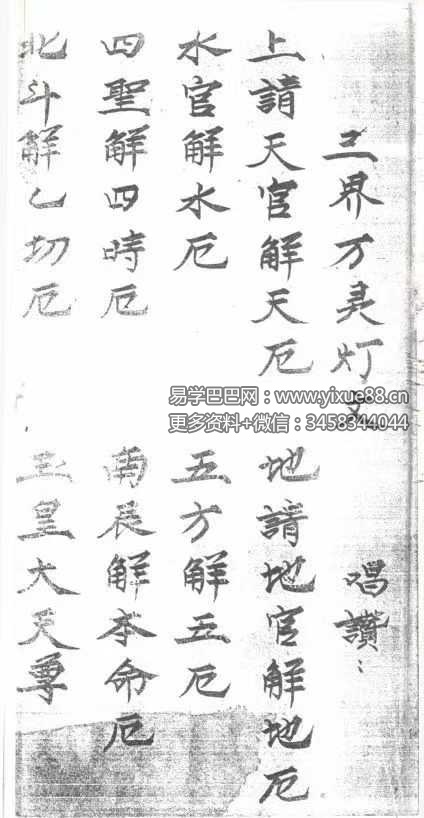 三界万灵灯文 唱讚：
上請天官解天厄 地請地官解地厄
水官解水厄 五方解五厄
四聖解四時厄 南辰解本命厄
北斗解乙切厄 玉皇大天尊
易学巴巴网：www.yixue88.cn
更多资料+微信：3458344044